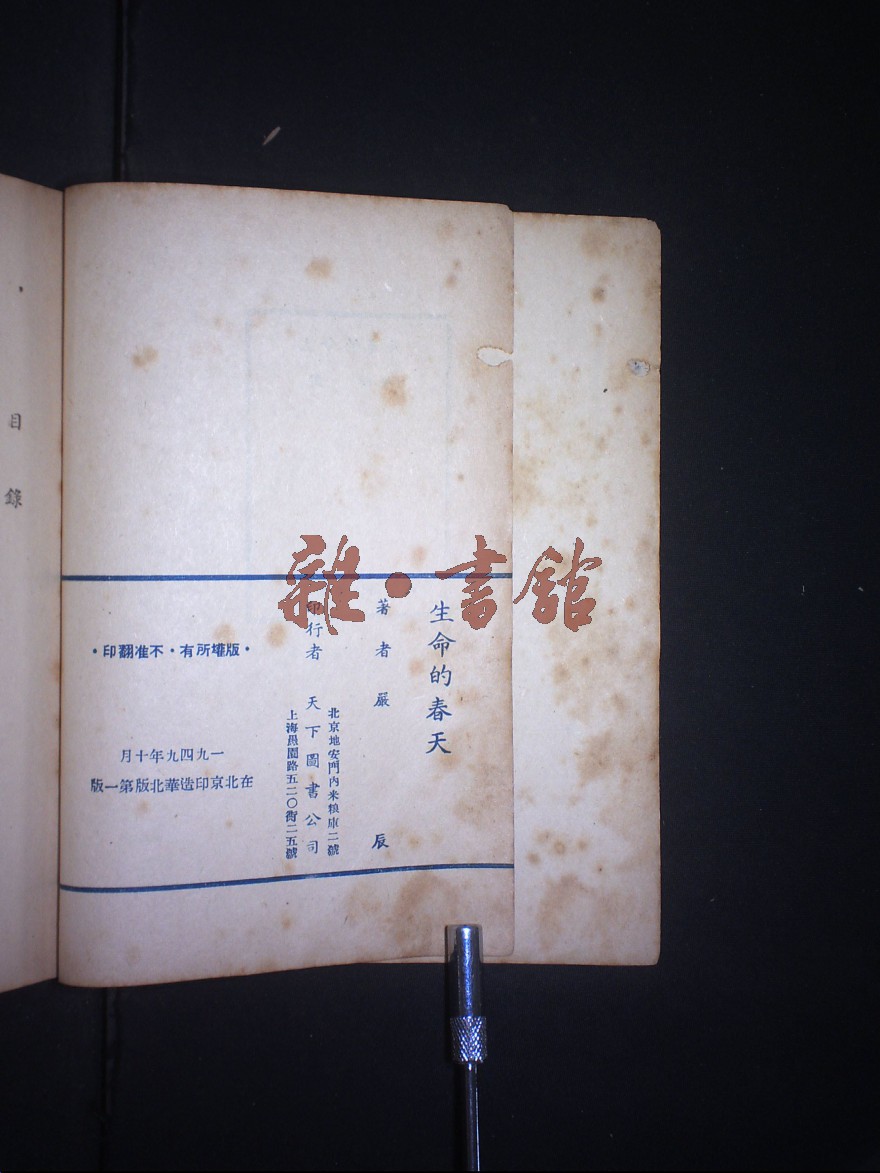 生命的春天
著者 嚴辰
印行者 天下圖書公司
北京地安門內米粮庫二號
上海愚園路五二〇街二五號
·版權所有·不准翻印·
一九四九年十月
在北京印造華北版第一版
目錄
雜·書館